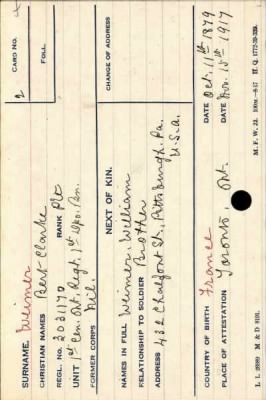 CARD NO.
4
2
FOLL.
SURNAME. Weimer
CHRISTIAN NAMES Bert Clarke
REGL. NO. 2021170 RANK Pte
UNIT 1st Cen. Ont. Regt. 1st Depo. Bn.
FORMER CORPS Nil.
CHANGE OF ADDRESS
NEXT OF KIN.
NAMES IN FULL Weimer, William
RELATIONSHIP TO SOLDIER Brother
ADDRESS 432 Chalfont St., Pittsburgh. Pa.
U.S.A.
COUNTRY OF BIRTH France DATE Oct. 11th 1879
PLACE OF ATTESTATION Toronto, Ont. DATE Nov. 15th 1917
M. F. W. 22. 100m.-9-17 H. Q. 1772-39-339.
M & D 9191.